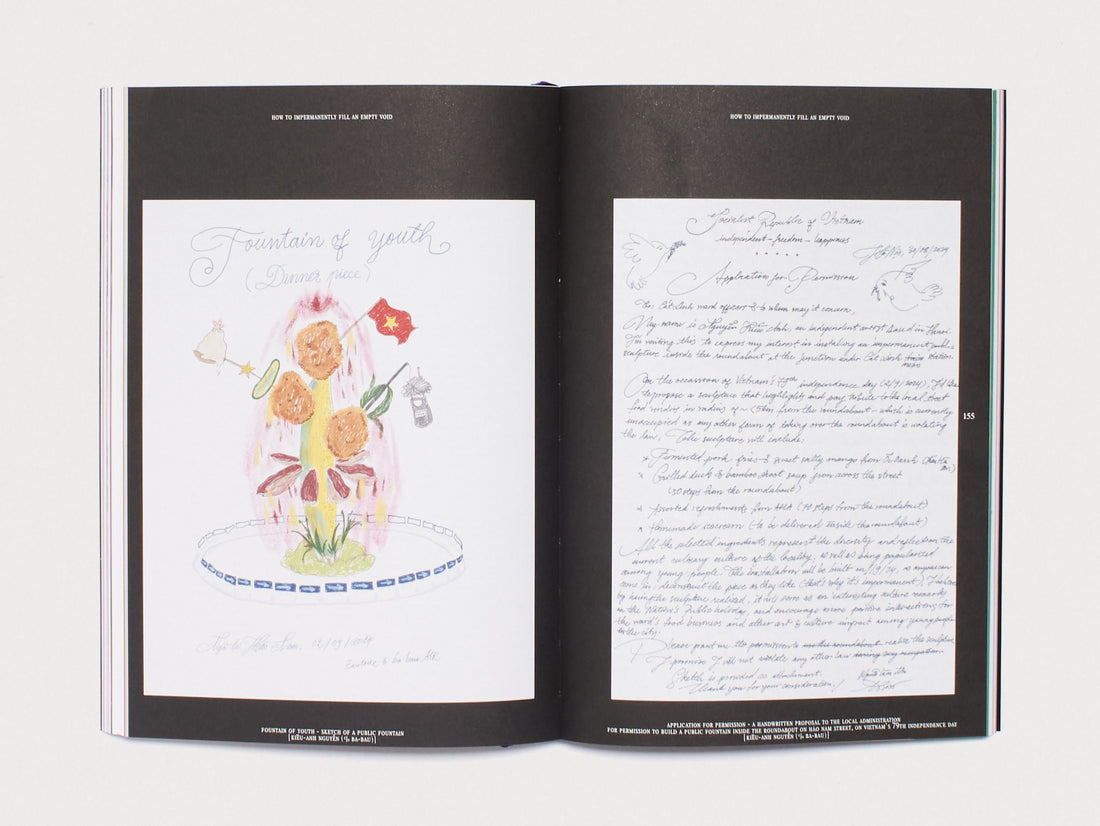 HOW TO IMPERMANENTLY FILL AN EMPTY VOID
Fountain of youth
(Dinner piece)
02/09/2024
FOUNTAIN OF YOUTH - SKETCH OF A PUBLIC FOUNTAIN
[KIỀU-ANH NGUYỄN (c/o BA-BAU)]
HOW TO IMPERMANENTLY FILL AN EMPTY VOID
Socialist Republic of Vietnam
independent - freedom - happiness
Application for Permission
To: Cát Linh ward officers & to whom may it concern,
My name is Nguyễn Kiều Anh, an independent artist based in Hanoi.
I'm writing this to express my interest in installing an impermanent public
sculpture inside the roundabout at the junction under Cat Linh train station.
metro
On the occassion of Vietnam's 79th independence day (2/9/2024), I'd like
to propose a sculpture that highlights and pay tribute to the local street
food vendors in radius of from the roundabout - which is currently
unoccupied as any other form of taking over the roundabout is violating
the law. The sculpture will include:
Fermented pork fries & sweet salty mango from
Grilled duck & bamboo shoot soup from across the street
(50 steps from the roundabout)
Assorted refreshments from (90 steps from the roundabout)
Homemade icecream (to be delivered inside the roundabout)
All the selected ingredients represent the diversity and reflect on the
current culinary culture of the locality, as well as being popularized
among young people. The installation will be built in 1/9/24, so anyone can
come in & deconstruct the piece as they like (that's why it's impermanent).
by having the sculpture realized, it will serve as an interesting culture
in the Nation's Public holiday, and encourage more positive interactions for
the ward's food business and other art & culture impact among young people
to the city.
Please grant me the permission to use the roundabout realize the sculpture
I promise I will not violate any other law during my occupation.
Sketch is provided as attachment.
Thank you for your consideration!
155
APPLICATION FOR PERMISSION - A HANDWRITTEN PROPOSAL TO THE LOCAL ADMINISTRATION
FOR PERMISSION TO BUILD A PUBLIC FOUNTAIN INSIDE THE ROUNDABOUT ON HÀO NAM STREET, ON VIETNAM'S 79TH INDEPENDENCE DAY
[KIỀU-ANH NGUYỄN (c/o BA-BAU)]